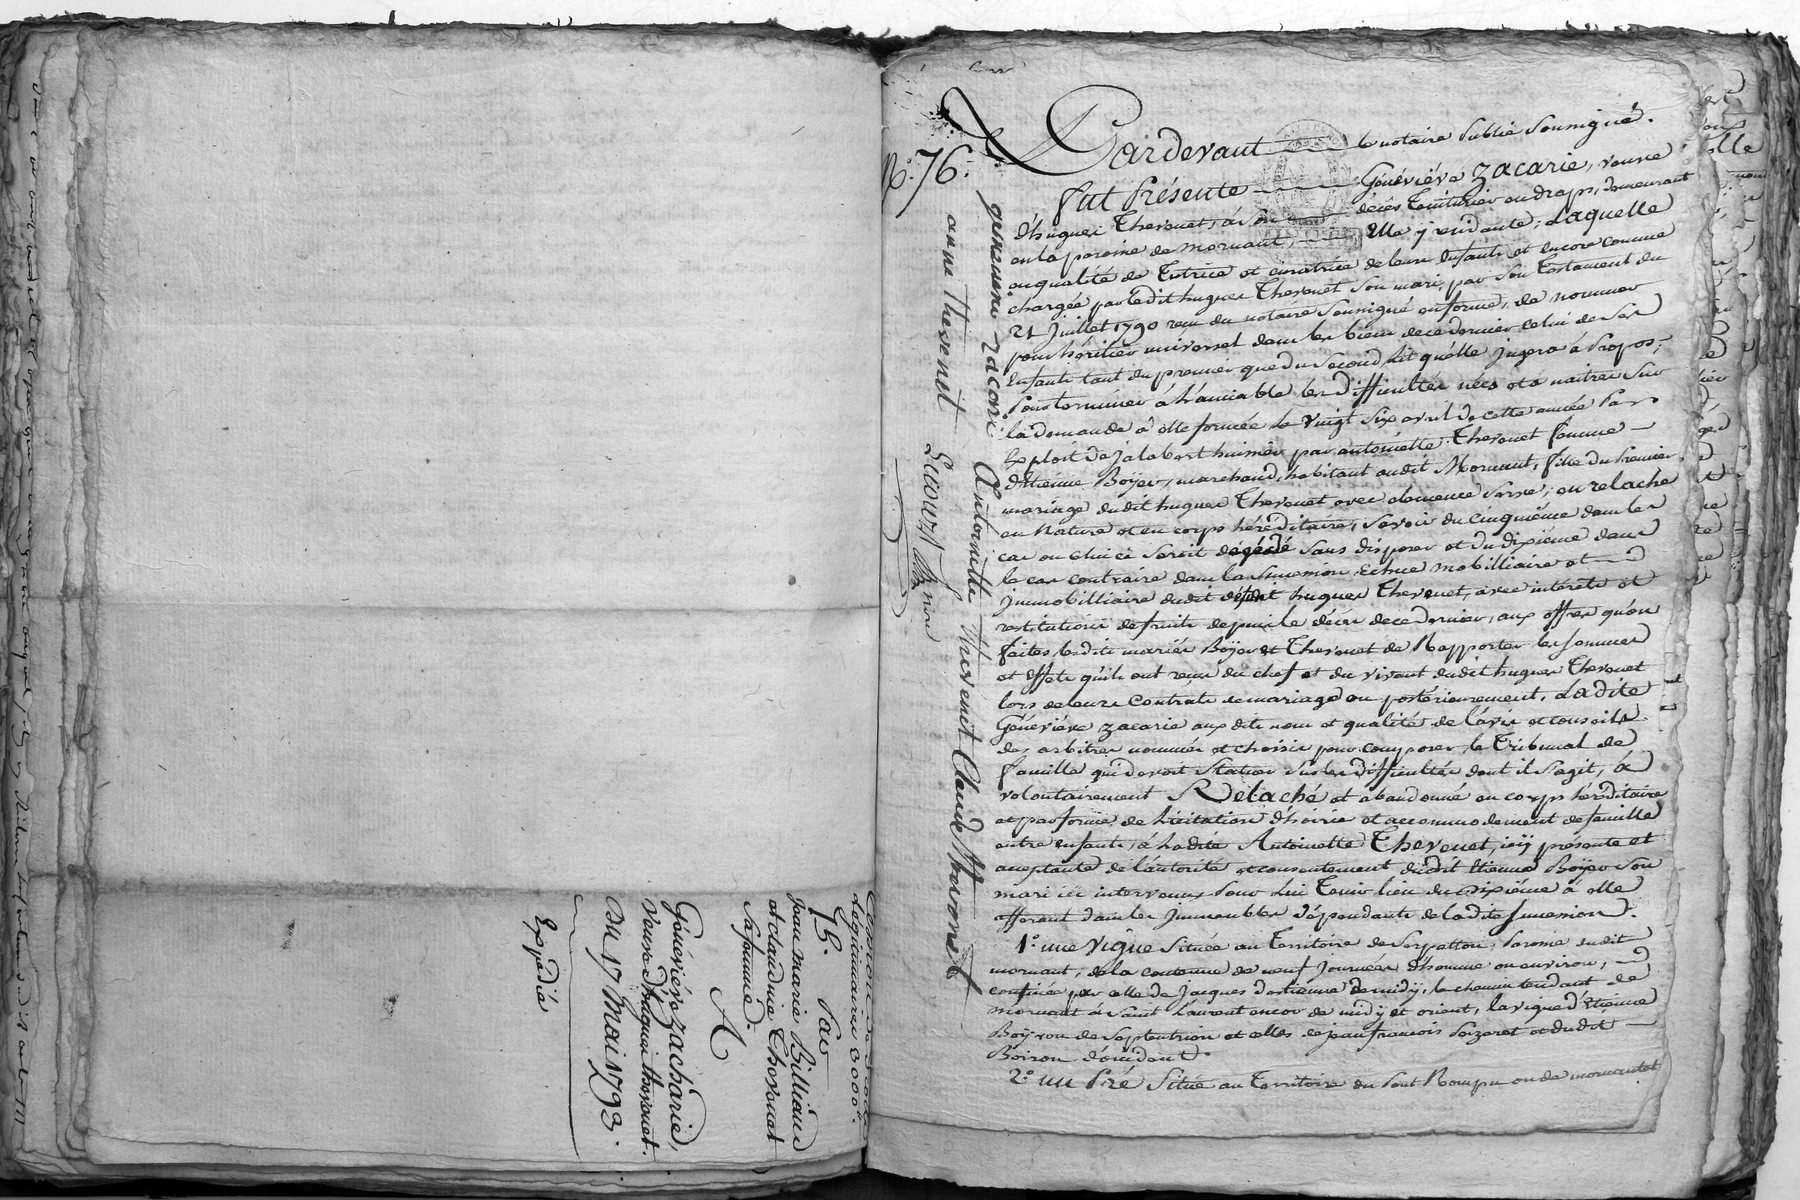 Cession de droits
légitimaires 3000#.
15. Par
Jean marie Billiaud
et claudine Thevenet
sa femme.
A
Géneviéve zacharie,
veuve d'hugues thevenet.
Du 17 Mai 1793.
Expédié
N°. 76.
genevieve zacarie Antoinette thevenet Claude thevenet
anne thevenet
Pardevant le notaire Public soussigné.
Fut Présente Généviéve Zacarie, veuve
d'hugues Thevenet, à son décès Teinturier en draps, demeurant
en la paroisse de mornant, Elle y residante; Laquelle
en qualité de Tutrice et curatrice de leurs Enfants, et encore comme
chargée par ledit hugues Thevenet son mari, par son Testament du
21 Juillet 1790 reçu du notaire soussigné en forme, de nommer
pour héritier universel dans les biens de ce dernier celui de ses
Enfants tant du premier que du second lit qu'elle jugera à Propos;
Pour terminer à l'amiable les difficultés nées et à naitres sur
la demande à elle formée le vingt six avril de cette année Par
Exploit de Jalabert huissier par antoinette Thevenet femme
d'Etienne Boÿer, marchand, habitant audit Mornant, fille du Premier
mariage dudit hugues Thevenet avec clemence en relache
en Nature et en corps héréditaires, Savoir du cinquième dans le
cas ou celui ci seroit décédé sans disposer et du dixieme dans
le cas contraire dans la succession Echue mobilliaire et
immobilliaire dudit défunt hugues Thevenet, avec intérets et
restitutions de fruits depuis le décès de ce dernier, aux offres qu'on
faites lesdits mariés Boÿer et Thevenet de Rapporter les sommes
et effets qu'ils ont reçus du chef et du vivant dudit hugues Thevenet
lors de leurs Contrats de mariage ou postérieurement, Ladite
Généviéve zacarie aux dits nom et qualités de l'avis et conseils
des arbitres nommés et choisis pour composer le Tribunal de
famille qui devoit Statuer sur les difficultés dont il s'agit, à
volontairement Relaché et abandonné en corps héréditaire
et par forme de licitation d'hoirie et accommodement de famille
entre enfants, à ladite Antoinette Thevenet, icÿ présente et
acceptante de l'autorité et consentement dudit Etienne Boÿer son
mari ici intervenus Pour Lui Tenir lieu du Dixième à elle
afferant dans les immeubles dépendants de ladite succession.
1°. une vigne Située au Territoire de Paroisse dudit
mornant, de la contenue de neuf journées d'homme ou environ,
confinée par celle de Jacques d'Etienne de midÿ, le chemin tendant de
mornant à Saint Laurent encor de midÿ et orient, la vigne d'Etienne
Boÿron de Septentrion et celles de jean françois et dudit
Boiron d'occident.
2° un Pré Situé au Territoire du Pont Rompu ou de mornantet